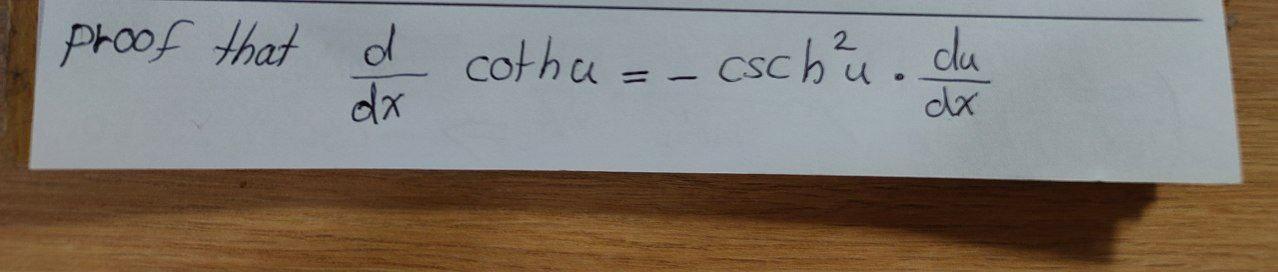 proof that d/dx cothu = - csch²u . du/dx